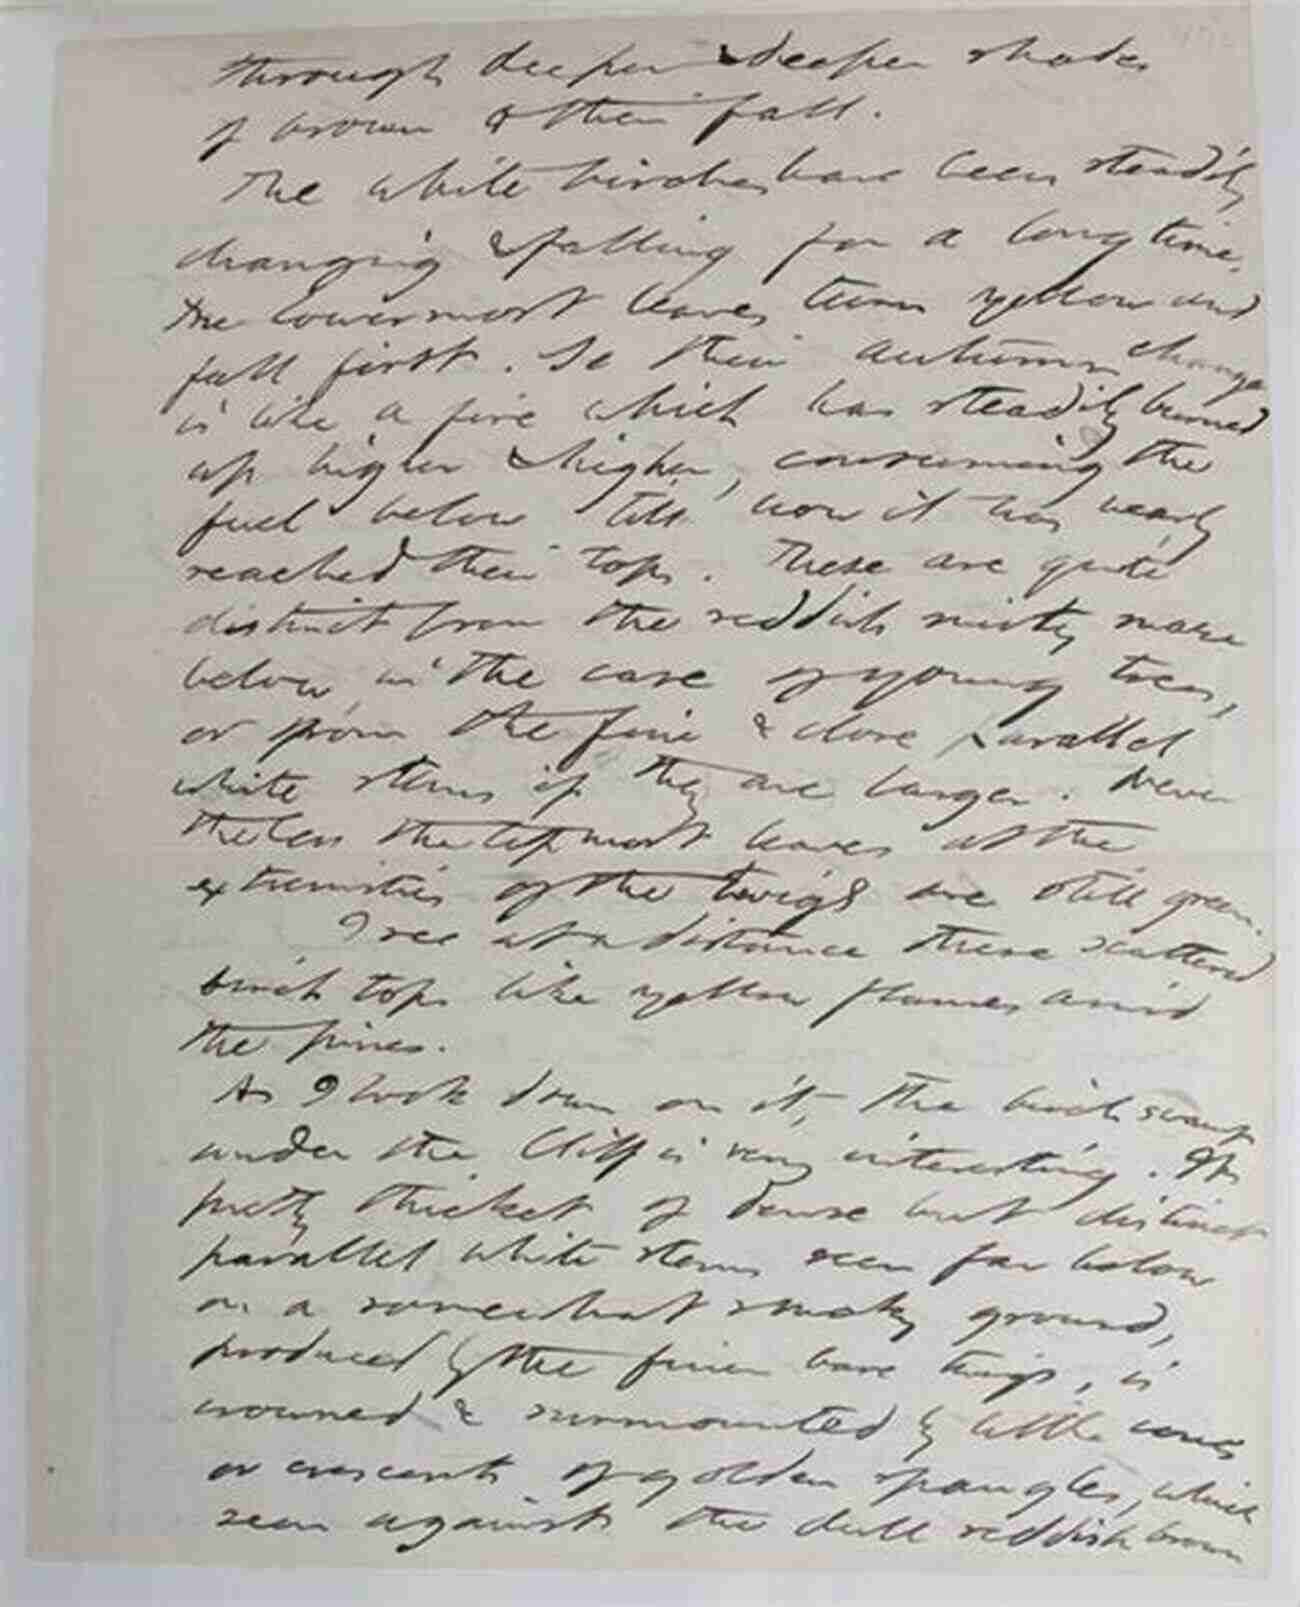 through deeper & deeper shades
of brown & then fall.
The white birches have been steadily
changing & falling for a long time,
The lowermost leaves turn yellow and
fall first. So their autumn change
is like a fire which has steadily burned
up higher & higher, consuming the
fuel below till now it has nearly
reached their tops. These are quite
distinct from the reddish misty maze
below, in the case of young trees,
or from the fine & close parallel
white stems if they are larger. Never
theless the topmost leaves at the
extremities of the twigs are still green.
I see at a distance these scattered
birch tops like yellow flames amid
the pines.
As I look down on it, the birch swamp
under the Cliff is very interesting. Its
pretty thicket of dense but distinct
parallel white stems seen far below
on a somewhat smoky ground,
produced by the finer bare twigs, is
crowned & surmounted by little cones
or crescents of golden spangles, which
seen against the dull reddish brown